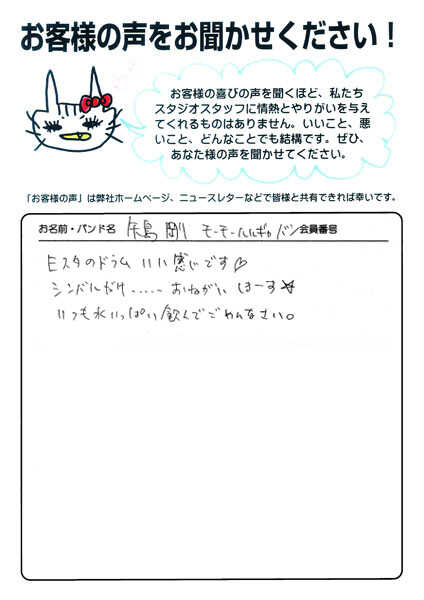 お客様の声をお聞かせください！
お客様の喜びの声を聞くほど、私たち
スタジオスタッフに情熱とやりがいを与え
てくれるものはありません。いいこと、悪
いこと、どんなことでも結構です。ぜひ、
あなた様の声を聞かせてください。
「お客様の声」は弊社ホームページ、ニュースレターなどで皆様と共有できれば幸いです。
お名前・バンド名 矢島 剛 会員番号
Eスタのドラム いい感じです♡
シンバルだけ……おねがい しまーす☆
いつも水いっぱい飲んでごめんなさい。